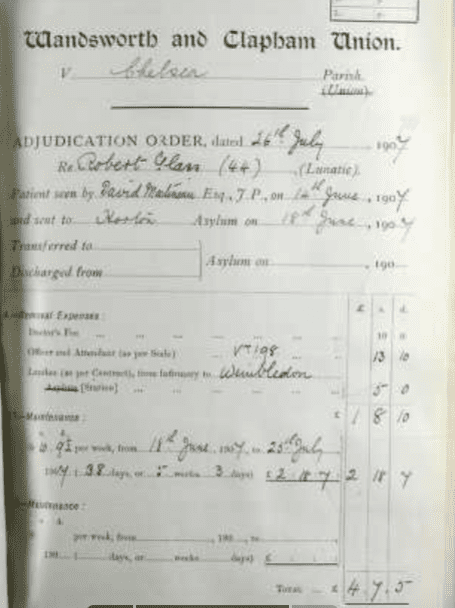 £ s. d.
Wandsworth and Clapham Union.
V Chelsea Parish
(Union).
ADJUDICATION ORDER, dated 26th July 1907
Re Robert Glass (44) (Lunatic).
Patient seen by David Martineau Esq., J.P., on 14th June, 1907
and sent to Horton Asylum on 18th June, 1907
Transferred to
Discharged from
Asylum on , 190
Removal Expenses :
£ s. d.
Doctor's Fee 10 0
Officer and Attendant (as per Scale) 13 10
Landau (as per Contract), from Infirmary to Wimbledon
Asylum [Station] 5 0
£ 1 8 10
Maintenance :
s. d.
per week, from 18th June, 1907, to 25th July
1907 ( 38 days, or 5 weeks 3 days) £ 2 18 7 2 18 7
Maintenance :
s. d.
per week, from , 190 , to
190 ( days, or weeks days) £
Total £ 4 7 5